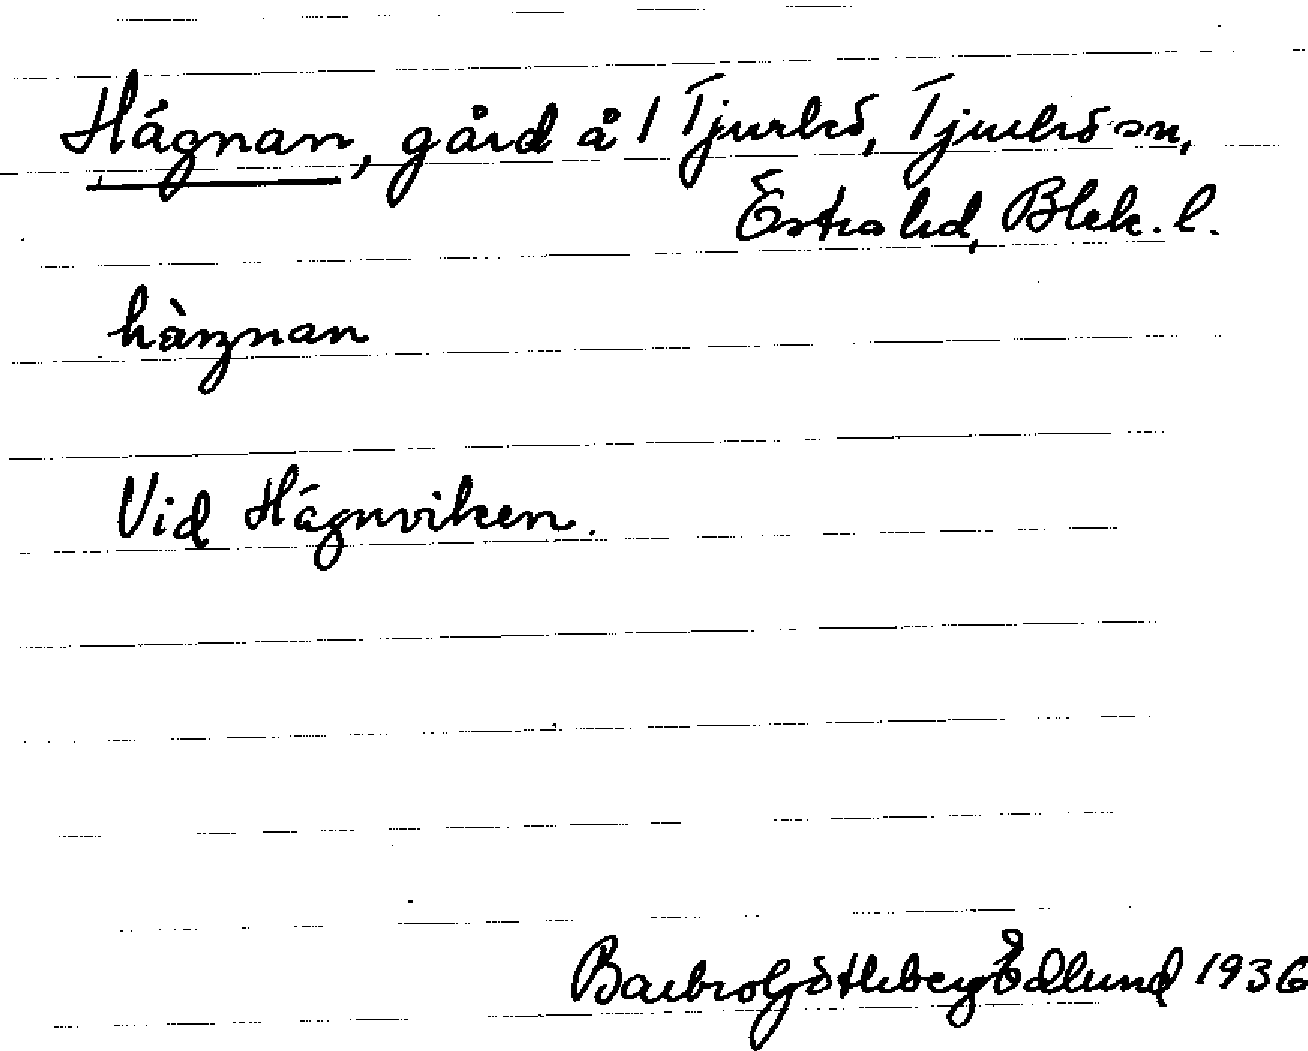 Hägnan, gård å 1 Tjurkö, Tjurkö sn,
Östra hd, Blek. l.
hàŋnan
Vid Hägnviken.
Barbro Götleborg Edlund 1936